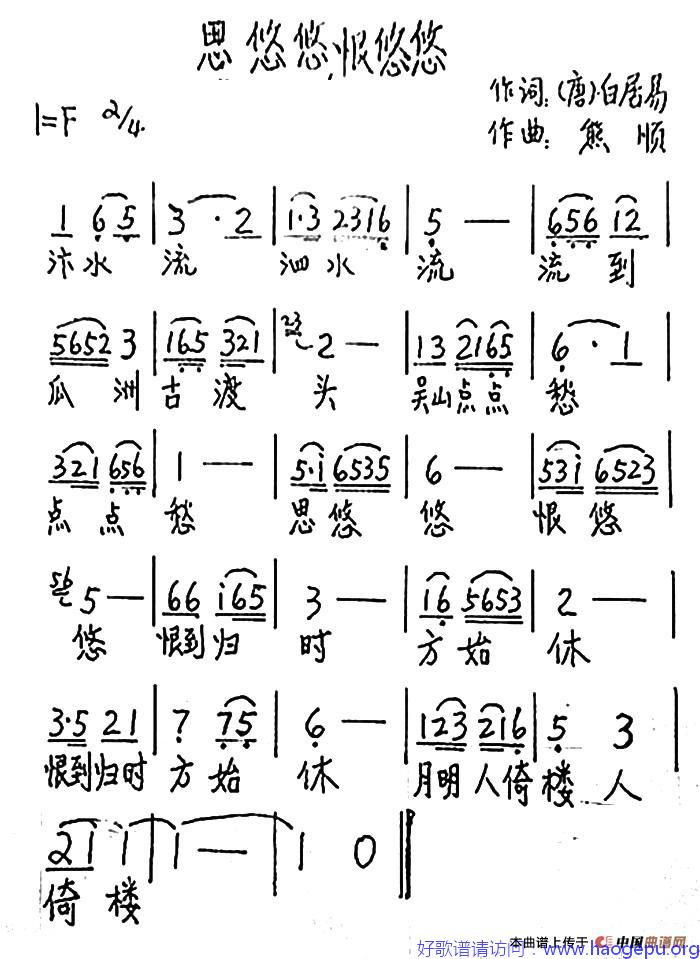 思悠悠,恨悠悠
作词:(唐)·白居易
1=F 2/4.
作曲: 熊顺
1 6 5 | 3 · 2 | 1·3 2316 | 5 — | 656 12 |
汴水 流 泗水 流 流 到
5652 3 | 165 321 | 23 2 — | 13 2165 | 6 · 1 |
瓜 洲 古 渡 头 吴山点点 愁
321 656 | 1 — | 5·i 6535 | 6 — | 53i 6523 |
点 点 愁 思悠 悠 恨 悠
56 5 — | 66 i65 | 3 — | i6 5653 | 2 — |
悠 恨到归 时 方 始 休
3·5 21 | 7 75 | 6 — | 123 216 | 5 3 |
恨到归时 方 始 休 月明人倚楼 人
21 1 | 1 — | 1 0 ‖
倚 楼
本曲谱上传于 中国曲谱网
好歌谱请访问:www.haogepu.org